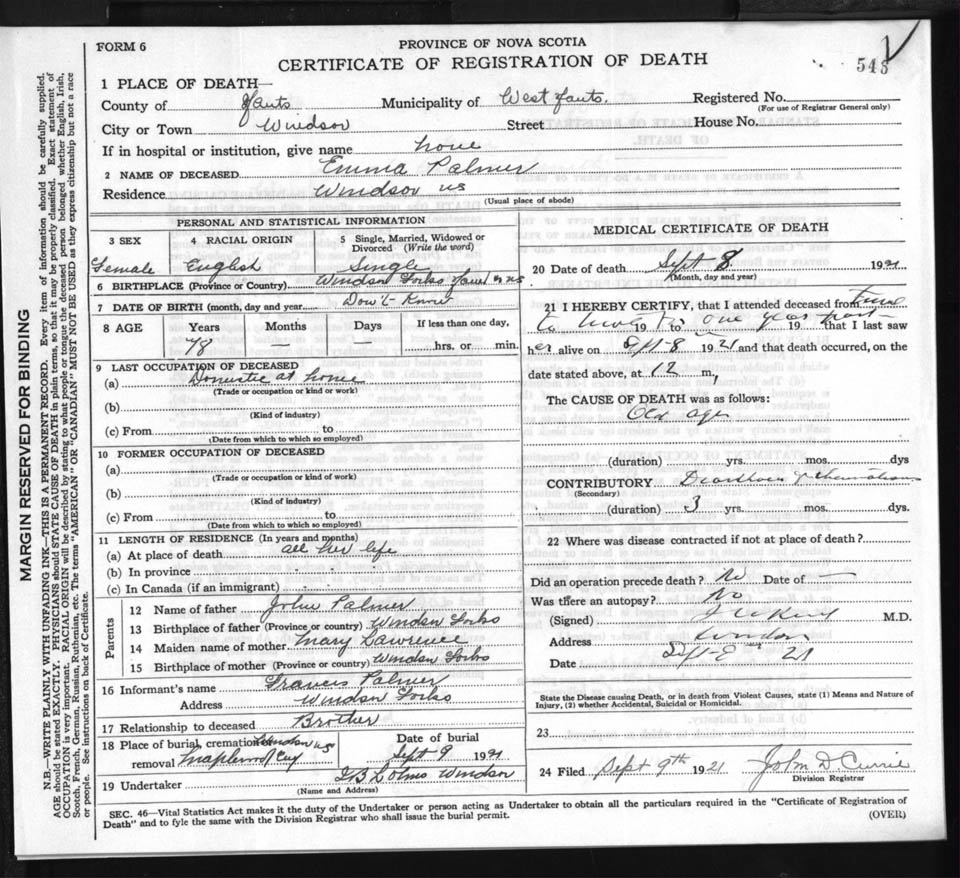 FORM 6
PROVINCE OF NOVA SCOTIA
CERTIFICATE OF REGISTRATION OF DEATH
543
1 PLACE OF DEATH—
County of Hants Municipality of West Hants. Registered No.
(For use of Registrar General only)
City or Town Windsor Street House No.
If in hospital or institution, give name none
2 NAME OF DECEASED Emma Palmer
Residence Windsor NS
(Usual place of abode)
PERSONAL AND STATISTICAL INFORMATION
3 SEX 4 RACIAL ORIGIN 5 Single, Married, Widowed or Divorced (Write the word)
Female English Single
6 BIRTHPLACE (Province or Country) Windsor Forks Hants NS
7 DATE OF BIRTH (month, day and year) Don't Know
8 AGE Years Months Days If less than one day,
78 — — hrs. or min.
9 LAST OCCUPATION OF DECEASED
(a) Domestic at home
(Trade or occupation or kind or work)
(b)
(Kind of industry)
(c) From to
(Date from which to which so employed)
10 FORMER OCCUPATION OF DECEASED
(a)
(Trade or occupation or kind of work)
(b)
(Kind of industry)
(c) From to
(Date from which to which so employed)
11 LENGTH OF RESIDENCE (In years and months)
(a) At place of death all her life
(b) In province
(c) In Canada (if an immigrant)
Parents
12 Name of father John Palmer
13 Birthplace of father (Province or country) Windsor Forks
14 Maiden name of mother Mary Lawrence
15 Birthplace of mother (Province or country) Windsor Forks
16 Informant's name Francis Palmer
Address Windsor Forks
17 Relationship to deceased Brother
18 Place of burial, cremation Windsor NS
removal Maplewood Cey
Date of burial
Sept 9 1921
19 Undertaker Windsor
(Name and Address)
MEDICAL CERTIFICATE OF DEATH
20 Date of death Sept 8 1921
(Month, day and year)
21 I HEREBY CERTIFY, that I attended deceased from time
to time 19 to one year past 19 that I last saw
her alive on Sept-8 1921 and that death occurred, on the
date stated above, at 12 m,
The CAUSE OF DEATH was as follows:
Old age
(duration) yrs. mos. dys
CONTRIBUTORY
(Secondary)
(duration) 3 yrs. mos. dys.
22 Where was disease contracted if not at place of death?
Did an operation precede death? No Date of —
Was there an autopsy? No
(Signed) M.D.
Address Windsor
Date Sept-8 21
State the Disease causing Death, or in death from Violent Causes, state (1) Means and Nature of
Injury, (2) whether Accidental, Suicidal or Homicidal.
23
24 Filed Sept 9th 1921 John D. Currie
Division Registrar
SEC. 46—Vital Statistics Act makes it the duty of the Undertaker or person acting as Undertaker to obtain all the particulars required in the "Certificate of Registration of
Death" and to fyle the same with the Division Registrar who shall issue the burial permit. (OVER)
MARGIN RESERVED FOR BINDING
N.B.—WRITE PLAINLY WITH UNFADING INK—THIS IS A PERMANENT RECORD. Every item of information should be carefully supplied.
AGE should be stated EXACTLY. PHYSICIANS should STATE CAUSE OF DEATH in plain terms, so that it may be properly classified. Exact statement of
OCCUPATION is very important. RACIAL ORIGIN will be described by stating to what people or tongue the deceased person belonged whether English, Irish,
Scotch, French, German, Russian, Ruthenian, etc. The terms "AMERICAN" or "CANADIAN" MUST NOT BE USED as they express citizenship but not a race
or people. See instructions on back of Certificate.